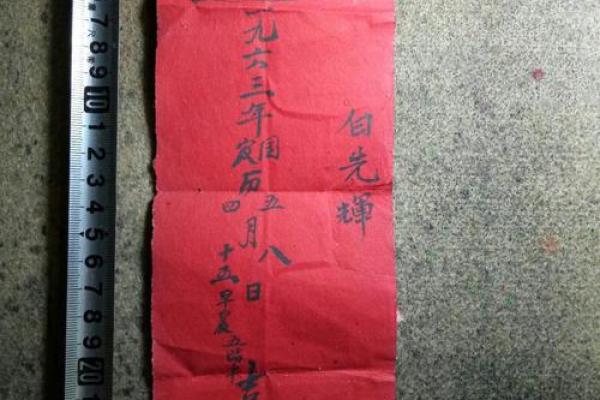 白先輝
一九六三年国历五月八日
农四十五早晨五點半
7 8 9 10 1 2 3 4 5 6 7 8 9 20